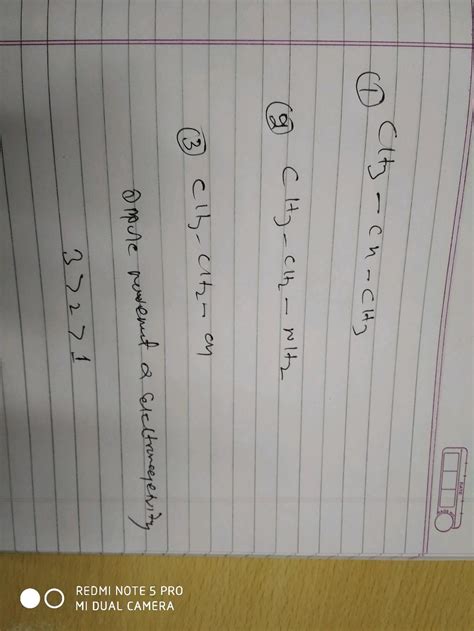 ① CH3 - CH - CH3
② CH3 - CH2 - NH2
③ CH3 - CH2 - OH
Dipole moment α Electronegetivity
3 > 2 > 1
DATE
REDMI NOTE 5 PRO
MI DUAL CAMERA